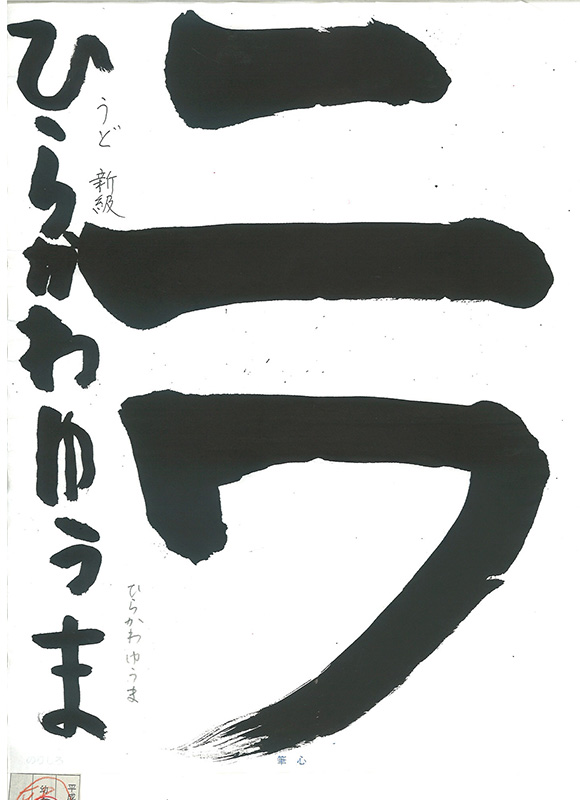 ニワ
うど 新級
ひらかわゆうま
ひらかわゆうま
筆心